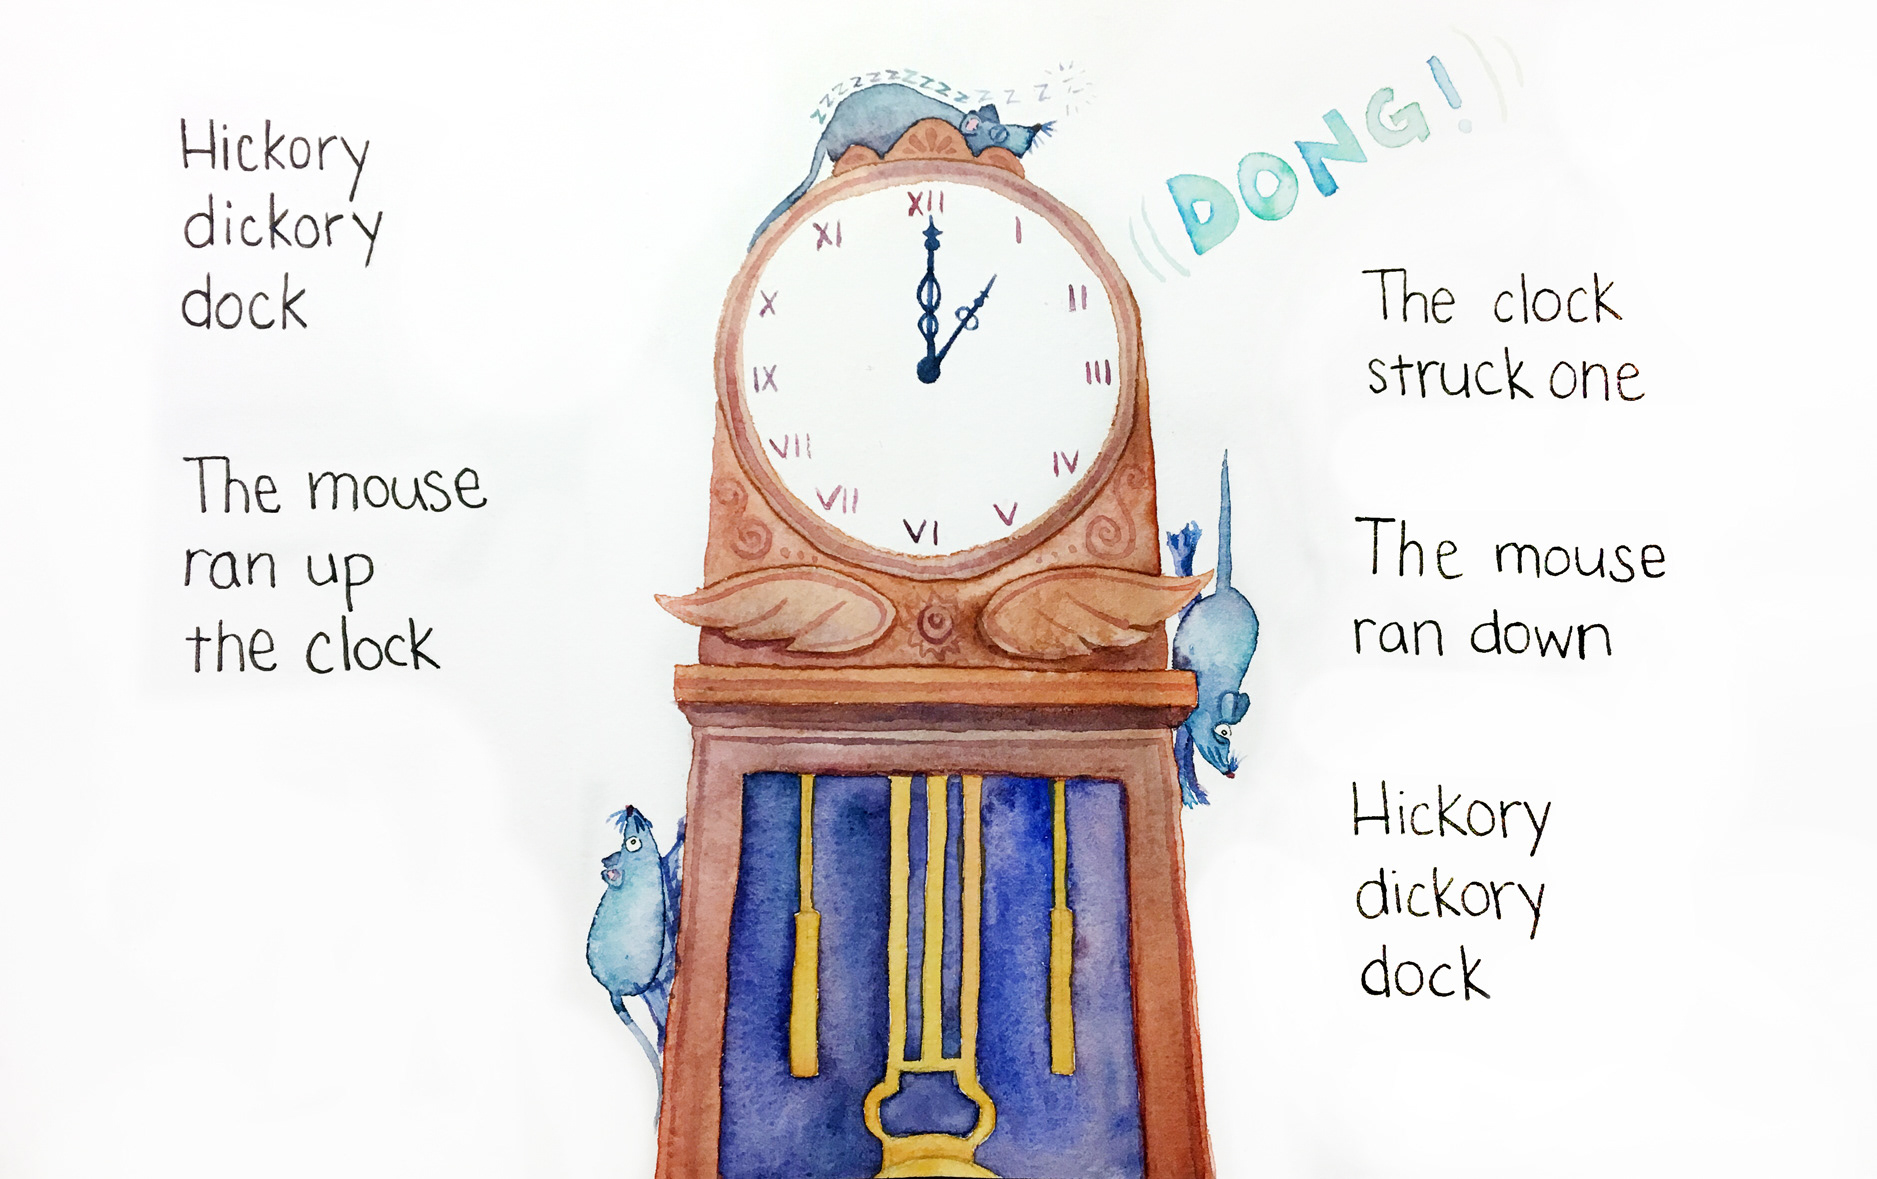 Hickory
dickory
dock
The mouse
ran up
the clock
zzzzzzzzzzzz z z z
XII
I
II
III
IV
V
VI
VII
VII
IX
X
XI
DONG!
The clock
struck one
The mouse
ran down
Hickory
dickory
dock